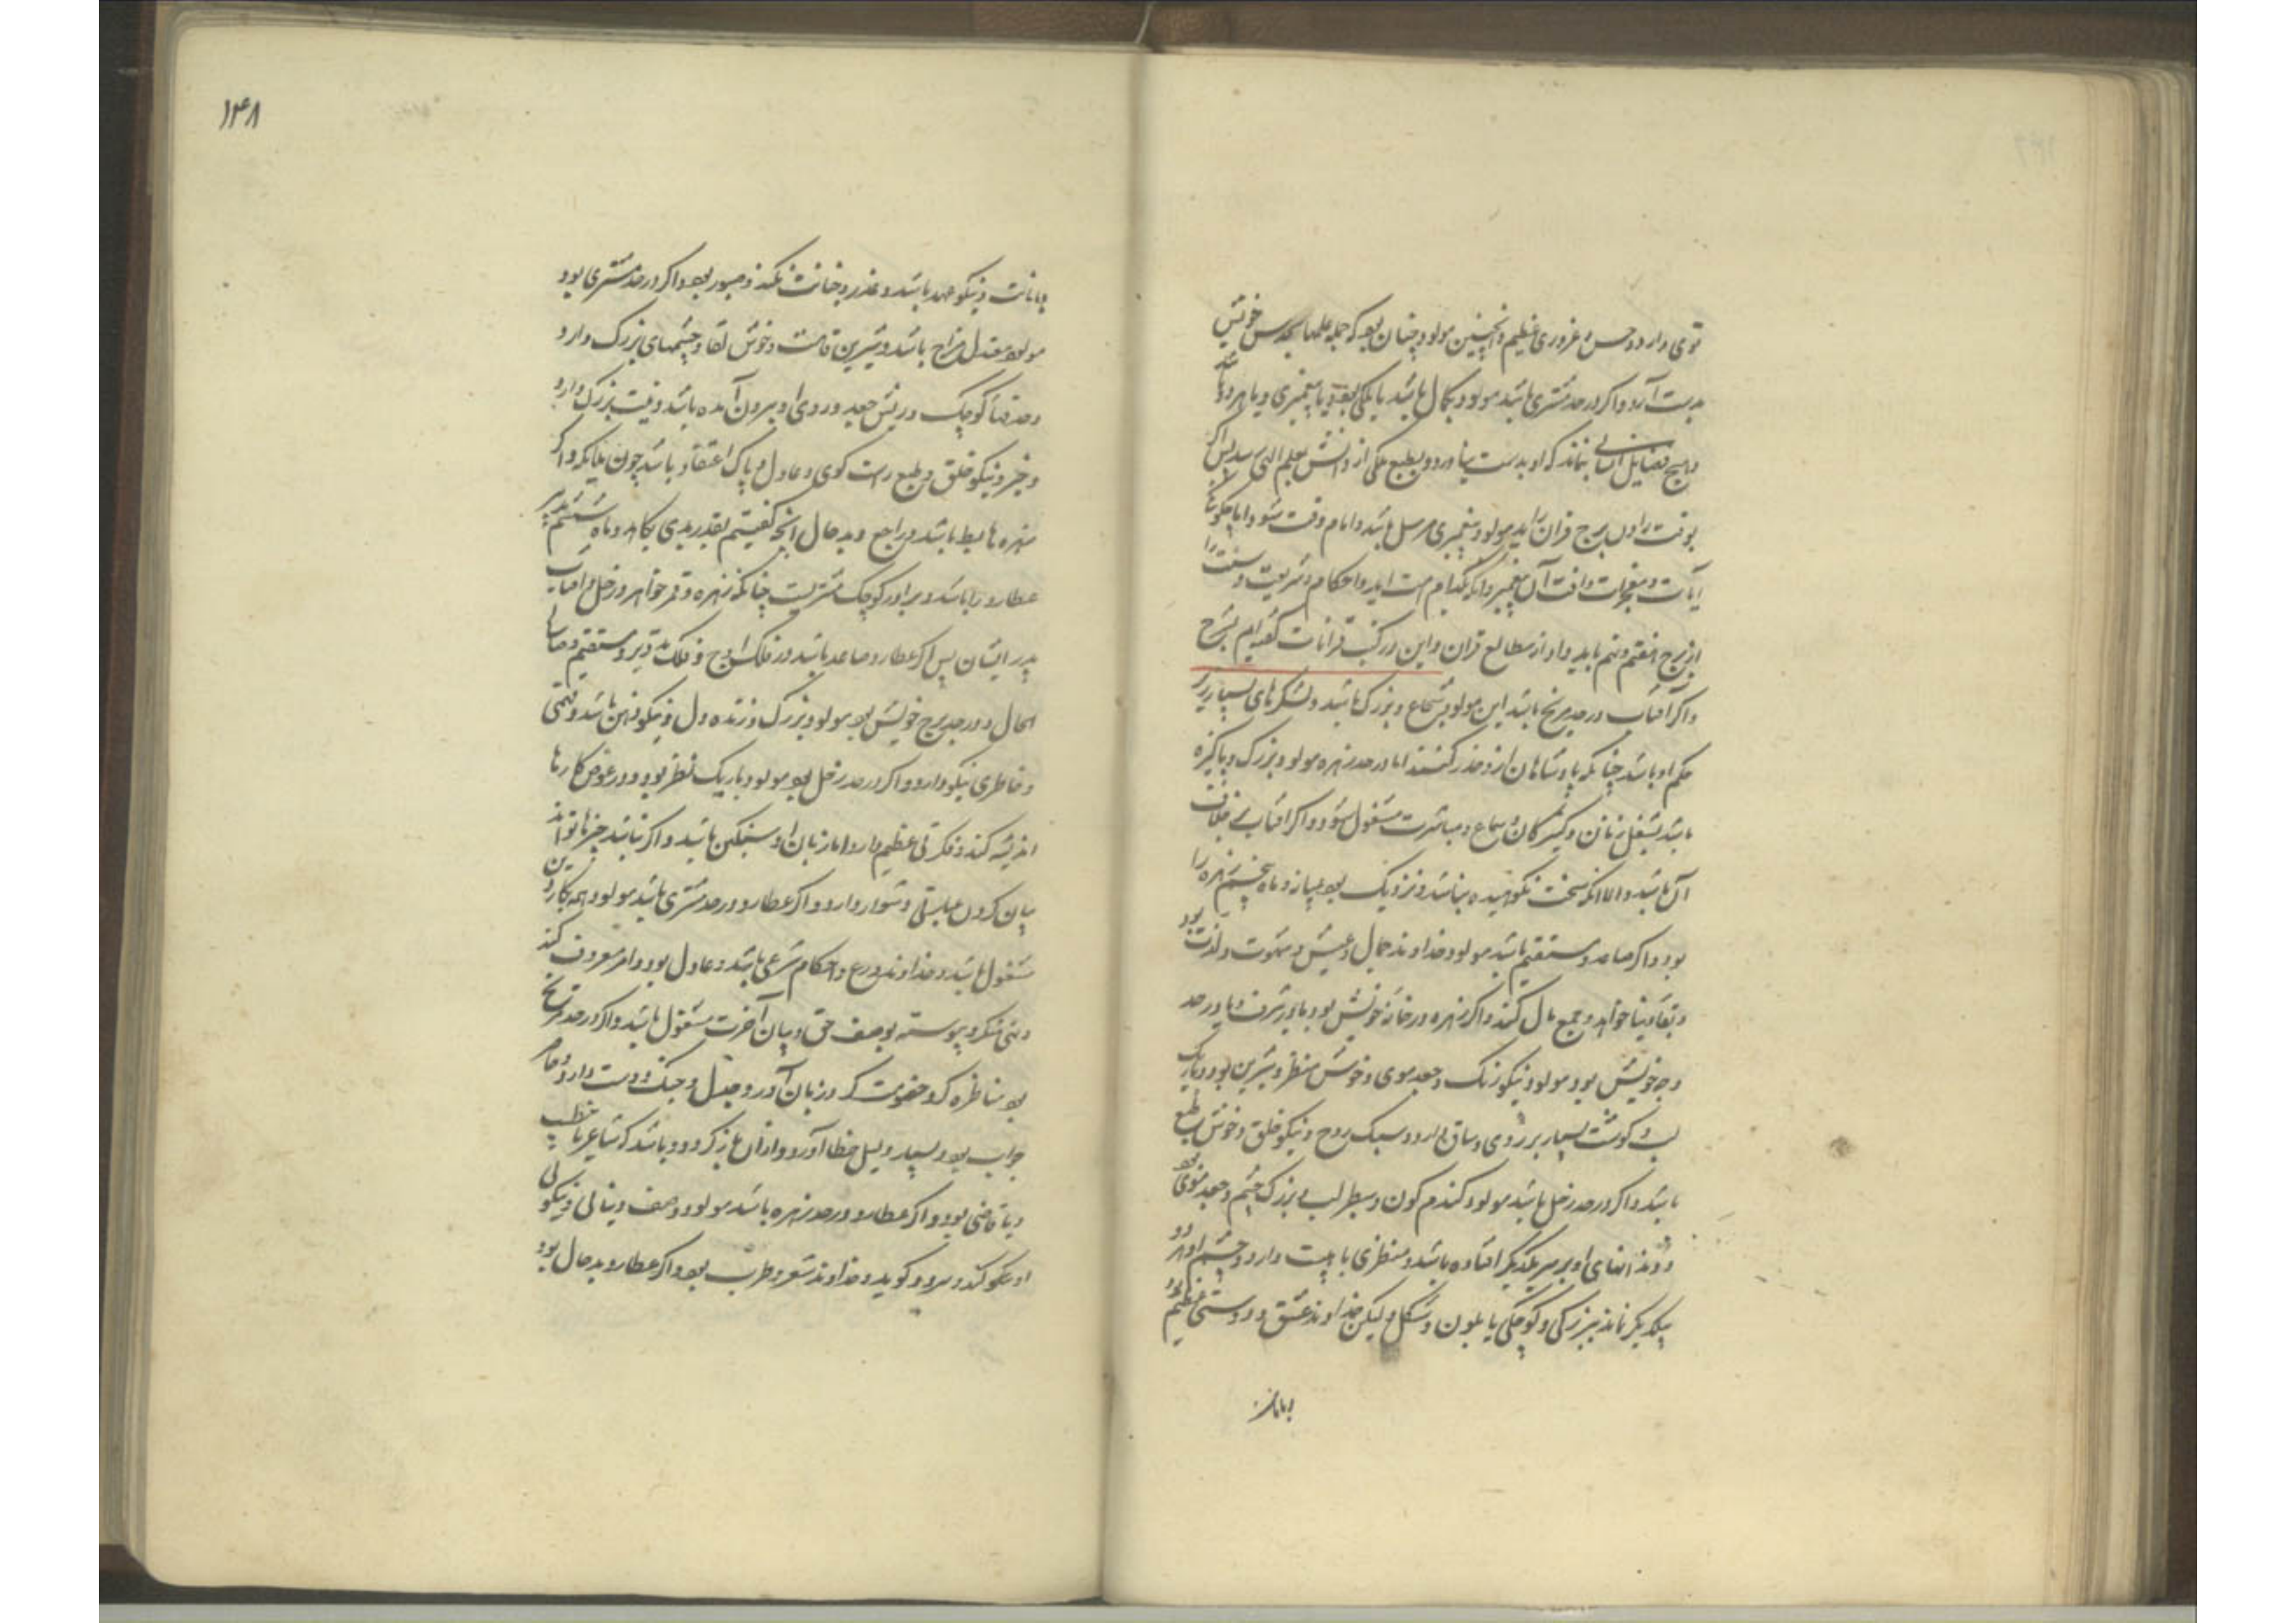 قوی دارد و حس و غروری عظیم و اینچنین مولود چنان بود که جمله علمها بحدس خویش
بدست آرد و اگر در حد مشتری باشد مولود بکمال باشد یا ملکی بود و یا پیغمبری و یا هر دو باشد
و هیچ فضایل انسانی نماند که او بدست نیاورد و بطبع ملکی از دانش بعلم الهی رسد پس اگر
بوقت اول برج قران زاید مولود پیغمبری مرسل باشد و امام وقت شود اما چگونگی
آیات و معجزات و آفت آن پیغمبر و آنکه بکدام امت آید و احکام و شریعت و سنت را
از برج هفتم و نهم یابد و او از مطالع قران و این در کتب قرانات گفته‌ایم بشرح
و اگر آفتاب در حد مریخ باشد این مولود شجاع و بزرگ باشد و لشکرهای بسیار زیر
حکم او باشد چنانکه پادشاهان ازو حذر کنند اما در حد زهره مولود بزرگ و پاکیزه
باشد بشغل زنان و کنیزکان و سماع و مباشرت مشغول شود و اگر آفتاب بخلاف
آن باشد والا آنکه سخت نکوهیده نباشد و نزدیک بود بمیانه و ماه پنجم زهره را
بود و اگر صاعد و مستقیم باشد مولود خداوند جمال و عیش و شهوت و لذت بود
و بقا دنیا خواهد و جمع مال کند و اگر زهره در خانه خویش بود یا در شرف و یا در حد
وجه خویش بود مولود نیکو رنگ و جعد موی و خوش منظر و شیرین بود و باریک
لب و گوشت بسیار بر روی و ساق دارد و سبک روح و نیکو خلق و خوش طبع
باشد و اگر در حد زحل باشد مولود گندم گون و سطبر لب و بزرگ چشم و جعد موی بود
و دندانهای او بر سر یکدیگر افتاده باشد و منظری با هیبت دارد و چشم او هر دو
بیکدیگر نماند ببزرگی و کوچکی یا بلون و شکل و لیکن خداوند عشق و دوستی عظیم بود
با امانت
۱۴۸
با امانت و نیکو عهد باشد و غدر و خیانت نکند و صبور بود و اگر در حد مشتری بود
مولود معتدل مزاج باشد و شیرین قامت و خوش لقا و چشمهای بزرگ دارد
و حدقتها کوچک و ریش جعد و روی او بیرون آمده باشد و نیت بزرگ دارد
و خیر و نیکو خلق و طبع راست گوی و عادل و پاک اعتقاد باشد چون ملایکه و اگر
زهره هابط باشد و راجع و بد حال آنچه گفتیم بقدر بدی بکاهد و ماه ششم تدبیر
عطارد را باشد و برادر کوچک مشتریست چنانکه زهره و قمر خواهر و زحل و آفتاب
پدر ایشان پس اگر عطارد صاعد باشد در فلک اوج و فلک تدویر و مستقیم و صالح
الحال و در حد برج خویش بود مولود بزرگ و زنده دل و نیکو ذهن باشد و فهمی
و خاطری نیکو دارد و اگر در حد زحل بود مولود باریک نظر بود و در غوص کارها
اندیشه کند و فکرتی عظیم دارد اما زبان او سنگین باشد و اگر نباشد چیزها تواند
بیان کردن عبارتی دشوار دارد و اگر عطارد در حد مشتری باشد مولود همه بکار دین
مشغول باشد و خداوند ورع و احکام شرعی باشد و عادل بود و امر معروف کند
و نهی منکر و پیوسته بوصف حق و بیان آخرت مشغول باشد و اگر در حد مریخ
بود مناظره گر و خصومت گر و زبان آور و جدل و جنگ دوست دارد و حاضر
جواب بود و بسیار دلیل خطا آورد و از آن باز گردد و باشد که شاعر یا خطیب
و یا قاضی بود و اگر عطارد در حد زهره باشد مولود وصف دینانی و نیکویی
او نیکو کند و سرود گوید و خداوند شعر و طرب بود و اگر عطارد بد حال بود